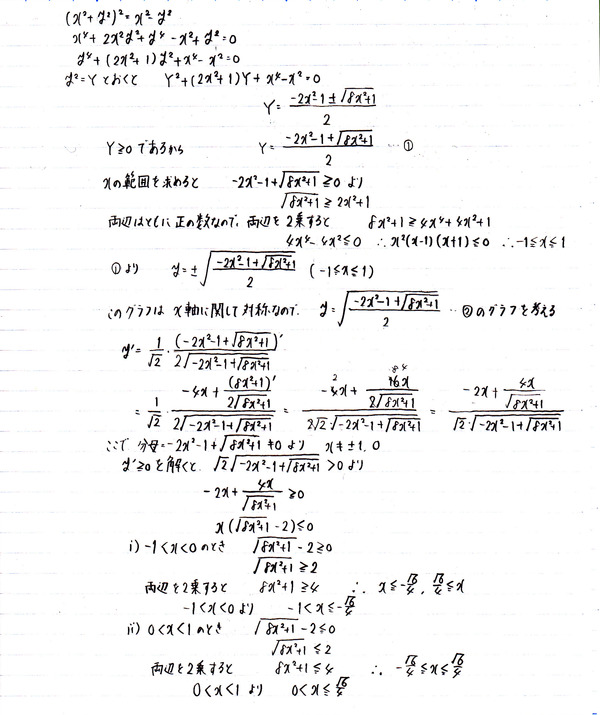 (x²+y²)²=x²-y²
x⁴+2x²y²+y⁴-x²+y²=0
y⁴+(2x²+1)y²+x⁴-x²=0
y²=Yとおくと Y²+(2x²+1)Y+x⁴-x²=0
Y=(-2x²-1±√(8x²+1))/2
Y≥0であるから Y=(-2x²-1+√(8x²+1))/2 …①
xの範囲を求めると -2x²-1+√(8x²+1)≥0より
√(8x²+1)≥2x²+1
両辺はともに正の数なので、両辺を2乗すると 8x²+1≥4x⁴+4x²+1
4x⁴-4x²≤0 ∴x²(x-1)(x+1)≤0 ∴-1≤x≤1
①より y=±√((-2x²-1+√(8x²+1))/2) (-1≤x≤1)
このグラフはx軸に関して対称なので、 y=√((-2x²-1+√(8x²+1))/2) …②のグラフを考える
y'=1/√2・(-2x²-1+√(8x²+1))'/(2√(-2x²-1+√(8x²+1)))
=1/√2・(-4x+(8x²+1)'/(2√(8x²+1)))/(2√(-2x²-1+√(8x²+1)))=(-4x+16x/(2√(8x²+1)))/(2√2・√(-2x²-1+√(8x²+1)))=(-2x+4x/√(8x²+1))/(√2・√(-2x²-1+√(8x²+1)))
ここで 分母=-2x²-1+√(8x²+1)≠0より x≠±1,0
y'≥0を解くと、√2√(-2x²-1+√(8x²+1))>0より
-2x+4x/√(8x²+1)≥0
x(√(8x²+1)-2)≤0
i)-1<x<0のとき √(8x²+1)-2≥0
√(8x²+1)≥2
両辺を2乗すると 8x²+1≥4 ∴x≤-√6/4, √6/4≤x
-1<x<0より -1<x≤-√6/4
ii)0<x<1のとき √(8x²+1)-2≤0
√(8x²+1)≤2
両辺を2乗すると 8x²+1≤4 ∴-√6/4≤x≤√6/4
0<x<1より 0<x≤√6/4